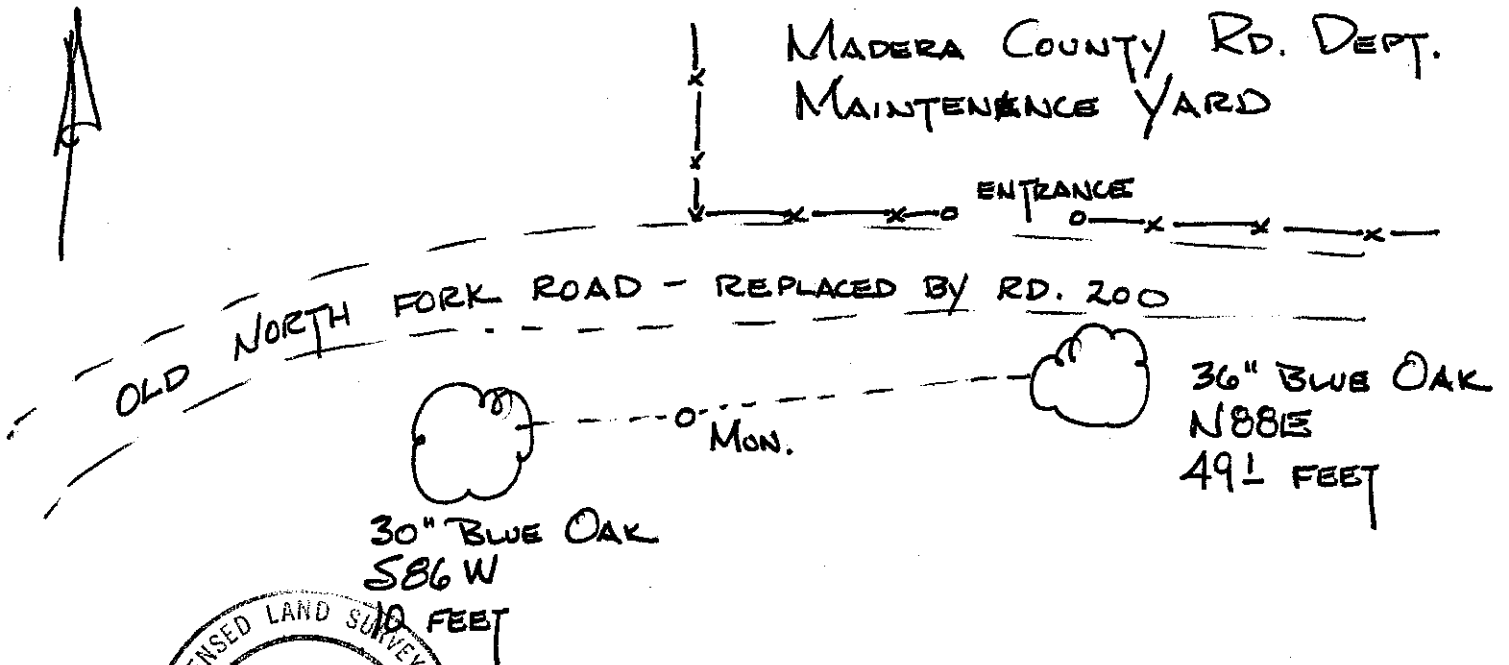 MADERA COUNTY RD. DEPT.
MAINTENANCE YARD
ENTRANCE
OLD NORTH FORK ROAD - REPLACED BY RD. 200
MON.
36" BLUE OAK
N88E
30" BLUE OAK
S86W
10 FEET
FEET
LAND